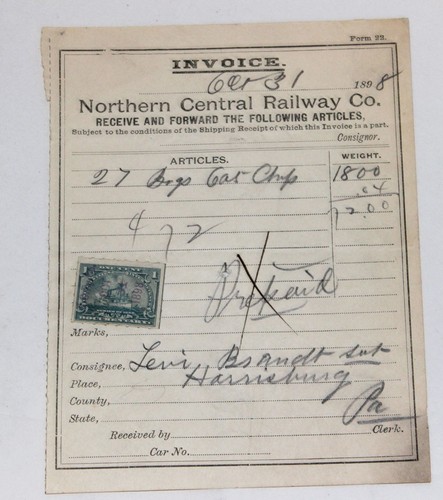 Form 22.
INVOICE.
Oct 31 1898
Northern Central Railway Co.
RECEIVE AND FORWARD THE FOLLOWING ARTICLES,
Subject to the conditions of the Shipping Receipt of which this Invoice is a part.
Consignor.
ARTICLES. WEIGHT.
27 Bags Oat Chop 1800
.04
72.00
4 72
Prepaid
1 ONE CENT 1
DOCUMENTARY
Marks,
Consignee, Levi Brandt
Place, Harrisburg
County,
State, Pa
Received by Clerk.
Car No.